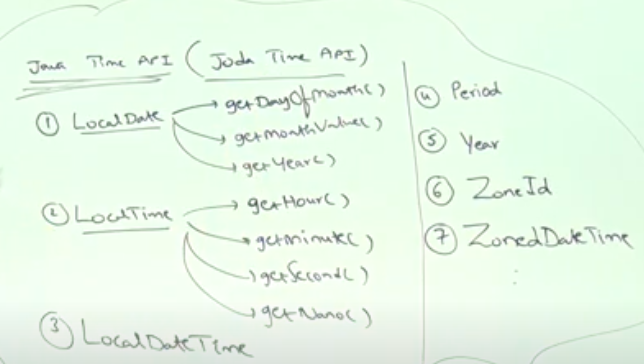 Java Time API (Joda Time API)
① LocalDate
→ getDayOfMonth()
→ getMonthValue()
→ getYear()
② LocalTime
→ getHour()
→ getMinute()
→ getSecond()
→ getNano()
③ LocalDateTime
④ Period
⑤ Year
⑥ ZoneId
⑦ ZonedDateTime
⋮